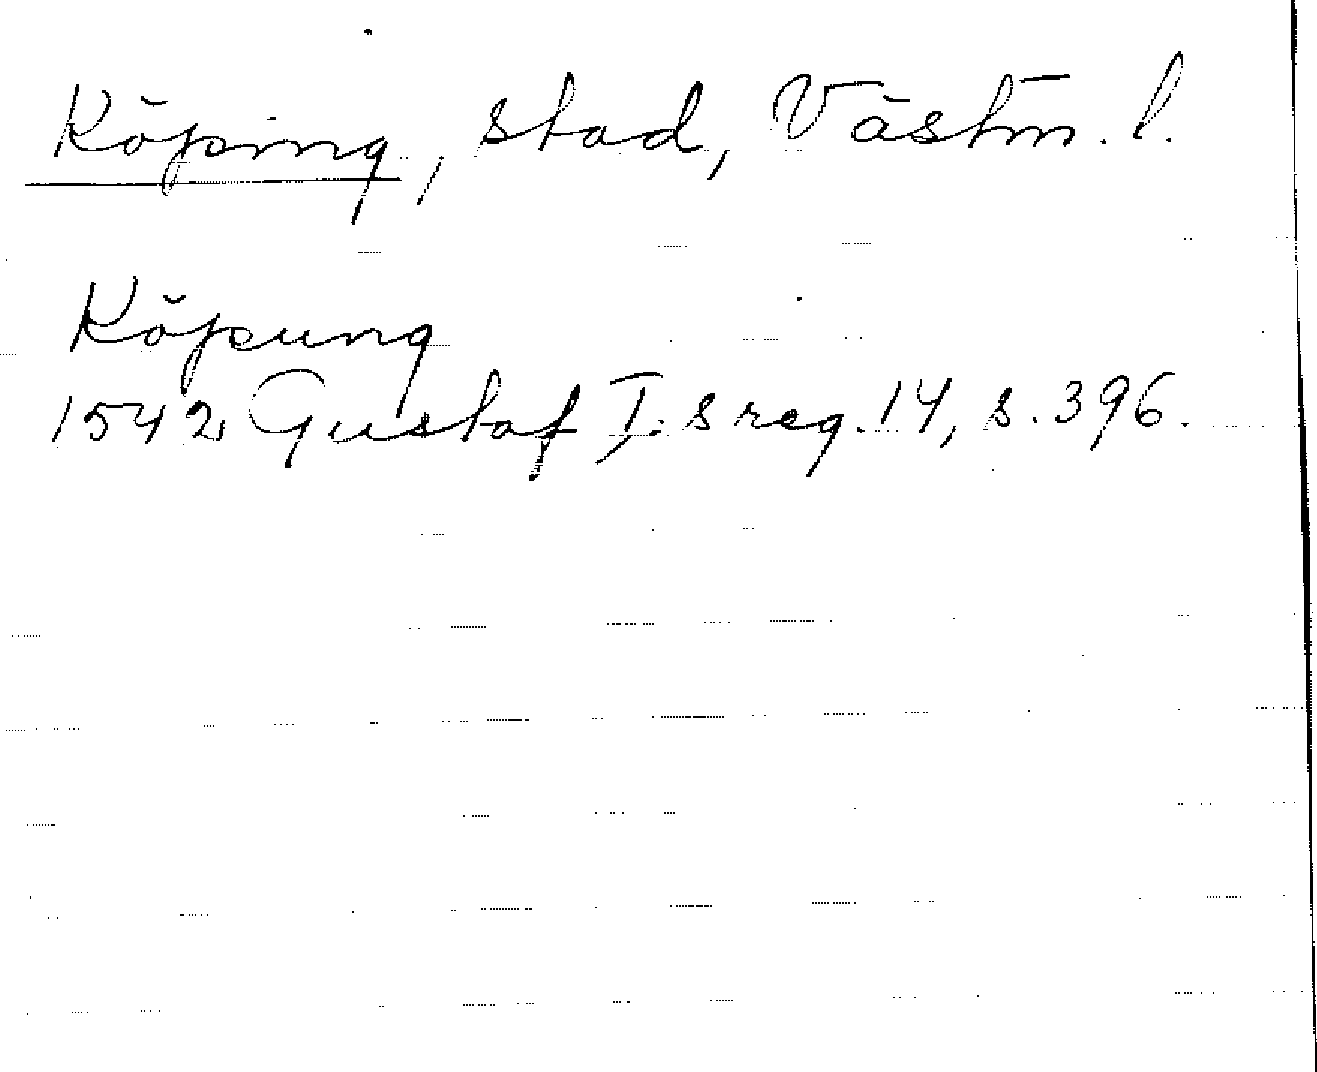 Köping, stad, Västm. l.
Köpung
1542 Gustaf I:s reg. 14, s. 396.